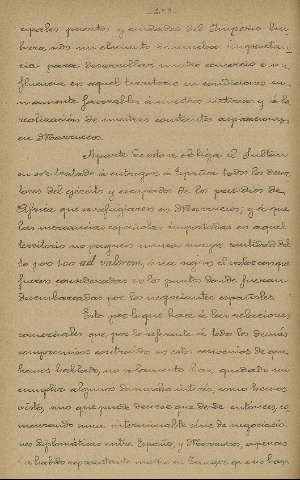 cipales puertos y ciudades del Imperio Con
para desarrollar nuestro comercio e in
fluencia en aquel territorio en condiciones su
mamente favorables a nuestros intereses y á la
realización de nuestras constantes aspiraciones
en Marruecos.
Aparte de esto se obliga el Sultán
en ese tratado á entregar á España todos los deser
tores del ejército y escapados de los presidios de
África que se refugiaren en Marruecos, y á que
las mercancías españolas importadas en aquel
territorio no paguen nunca mayor cantidad del
10 por 100 ad valorem, ó sea según el valor con que
fueran consideradas en los puntos donde fueran
desembarcadas por los negociantes españoles.
Esto por lo que hace á las relaciones
comerciales que por lo referente á todos los demás
compromisos contraidos en estos convenios de que
hemos hablado, no solamente han quedado sin
cumplir algunos de mucho interés, como hemos
visto, sino que puede decirse que desde entonces, co
menzando una interminable serie de negociacio
nes diplomáticas entre España y Marruecos, apenas
ha habido representante nuestro en Tanger que no haya